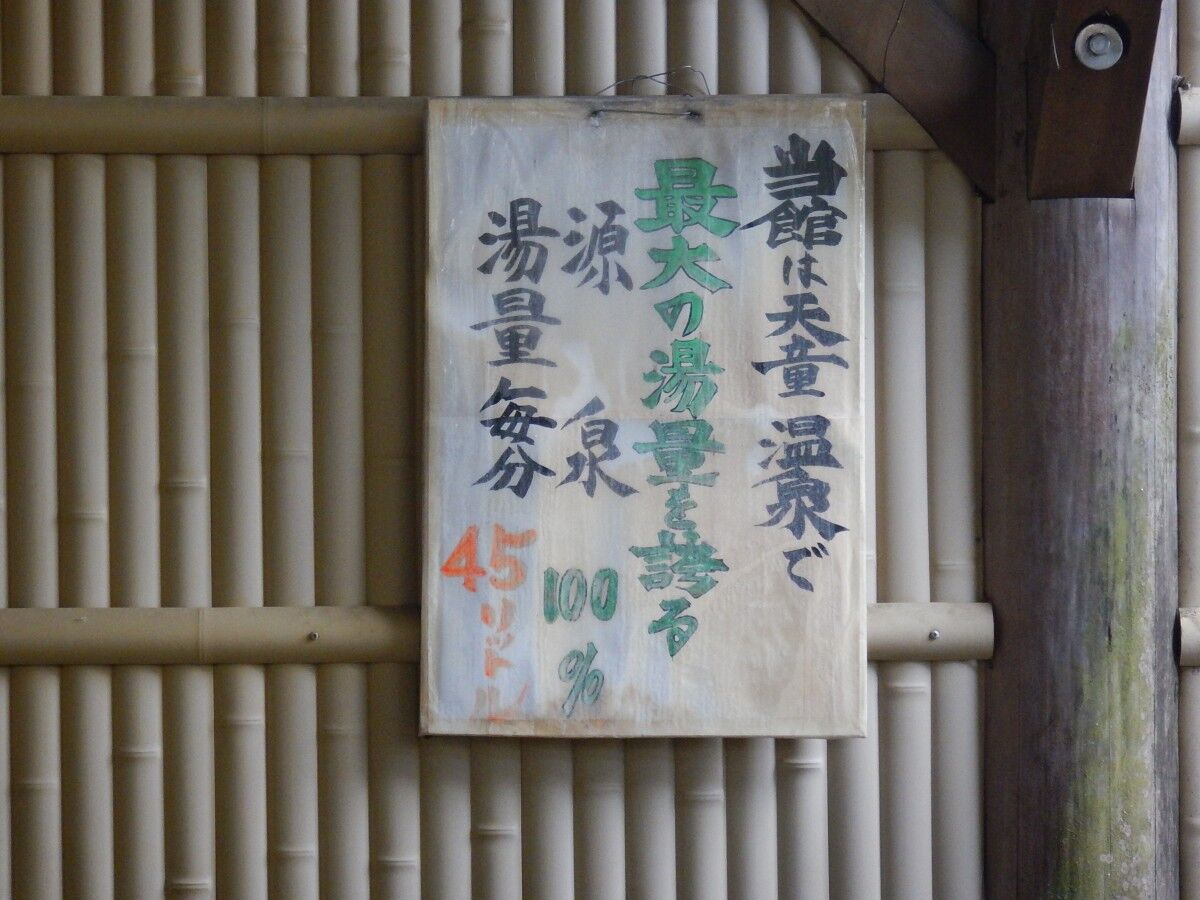 当館は天童温泉で
最大の湯量を誇る
源泉100%
湯量毎分45リットル